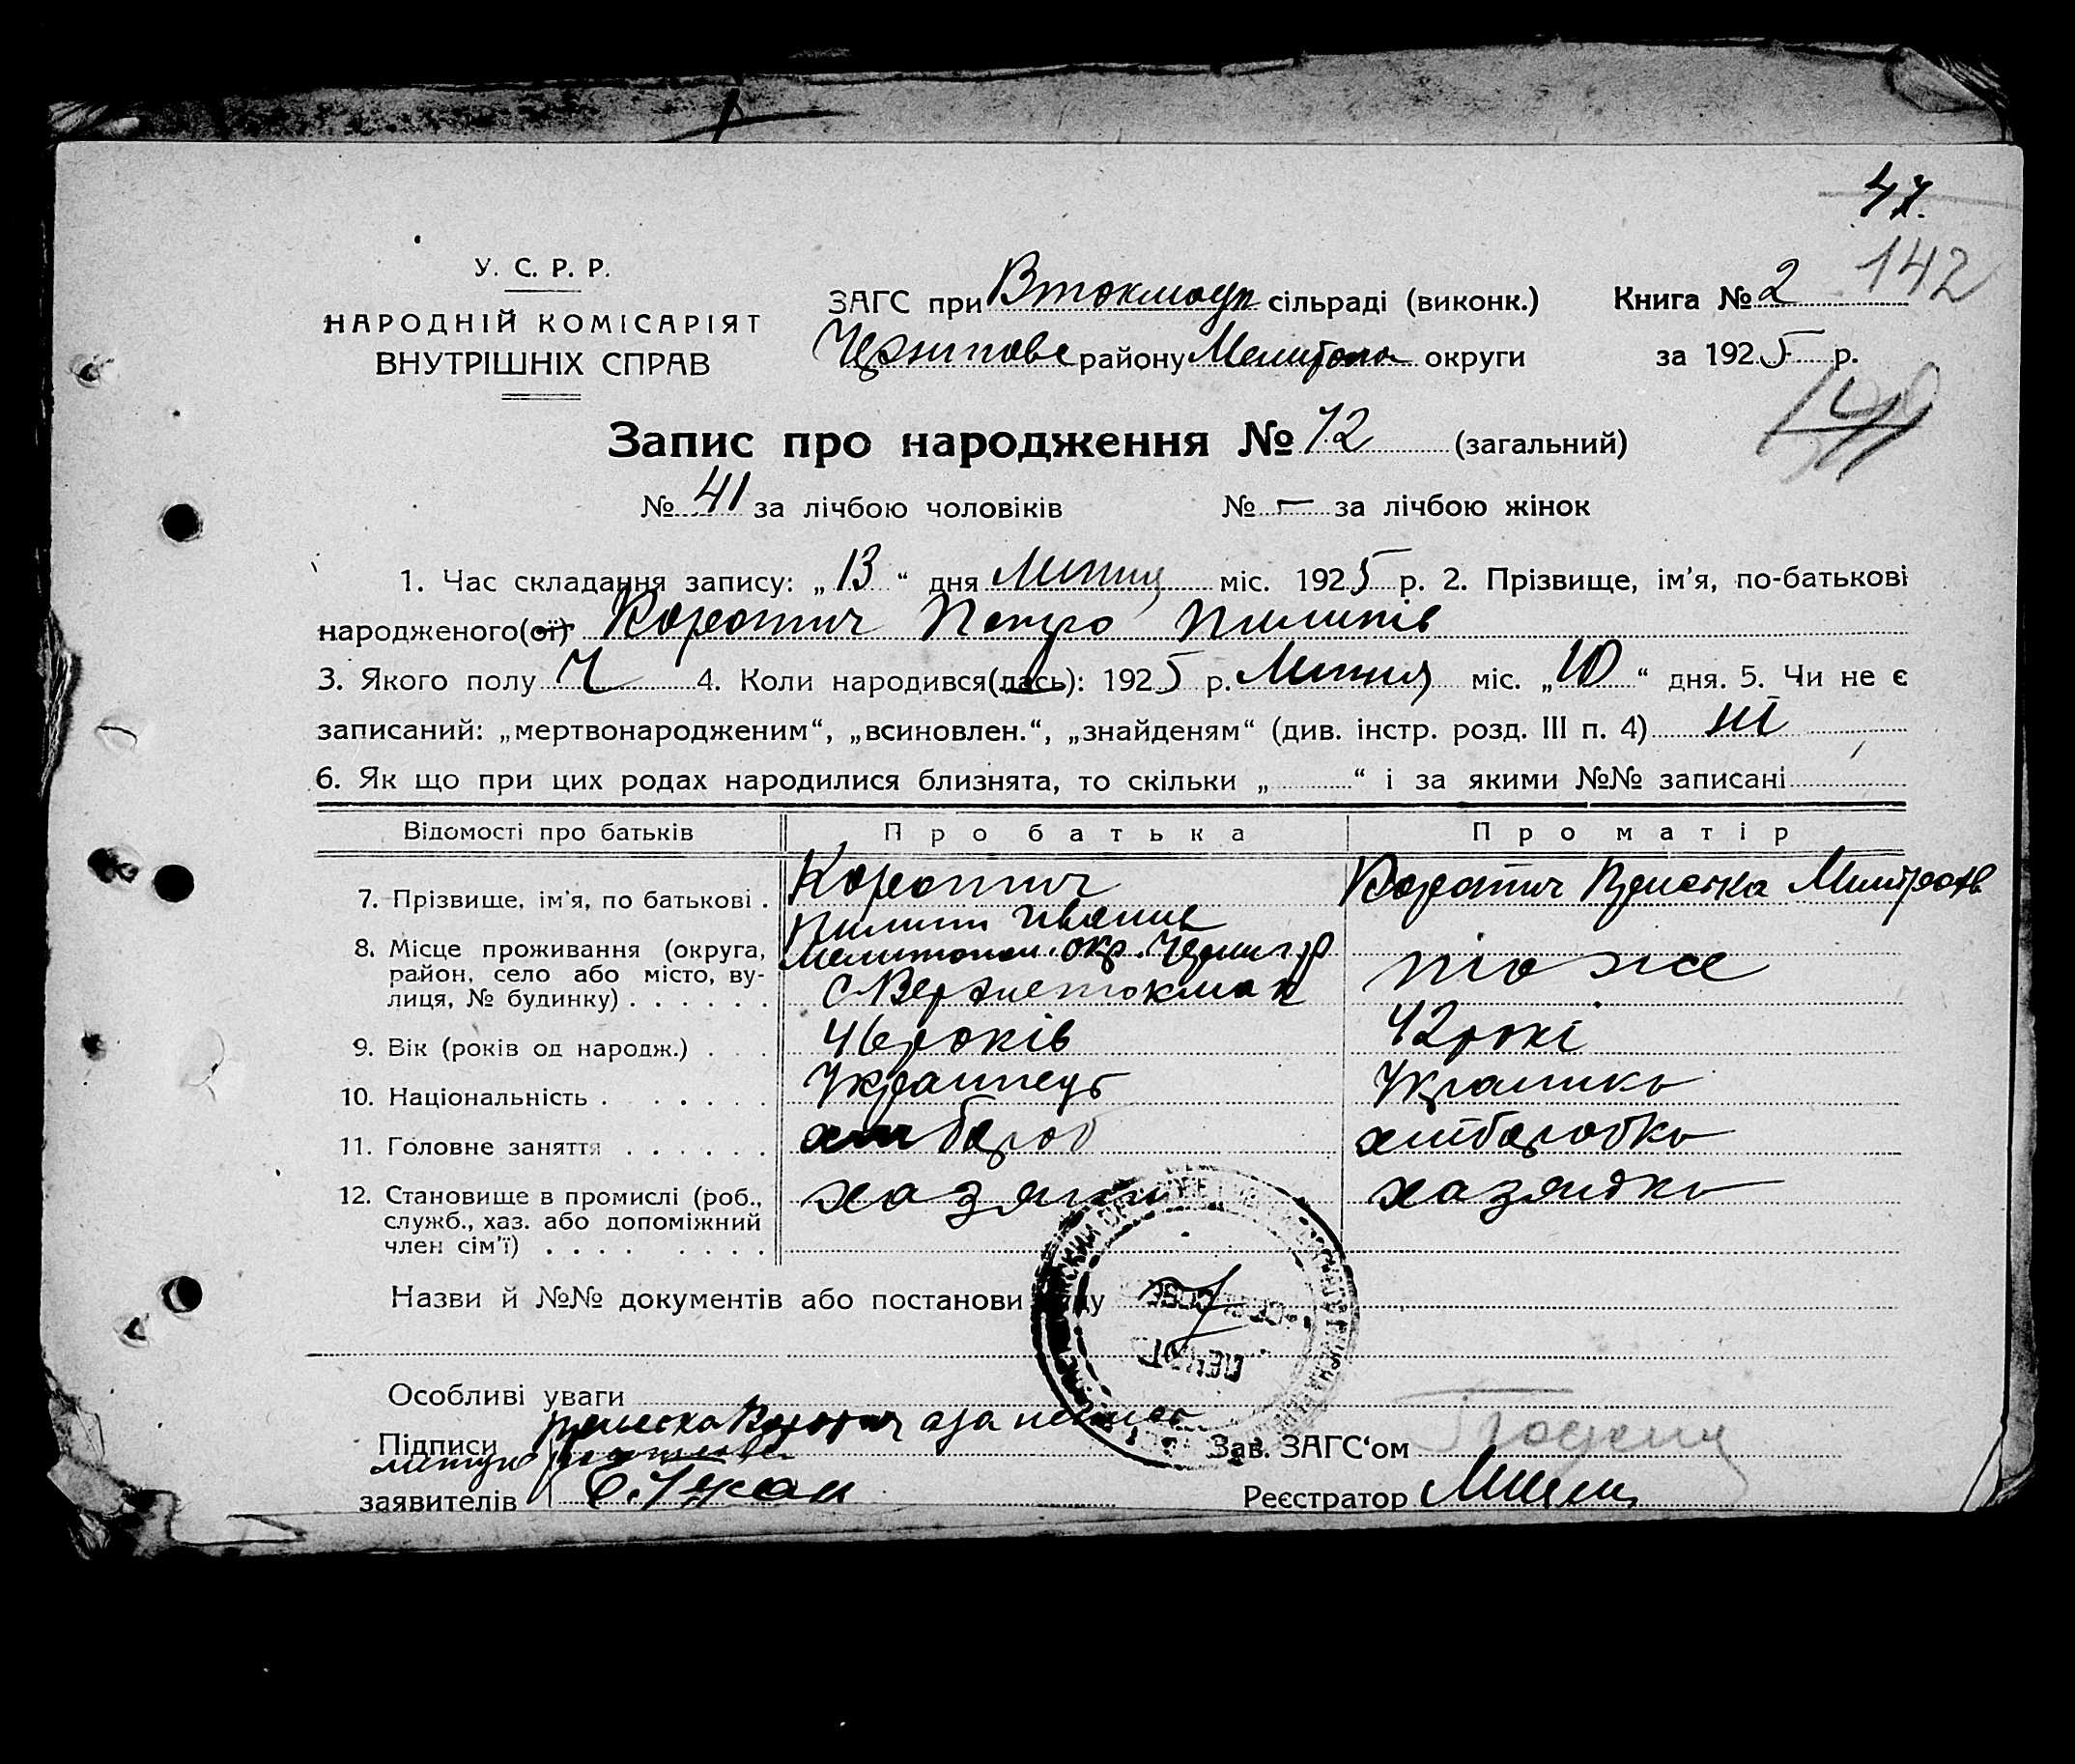 47.
142
У. С. Р. Р.
НАРОДНІЙ КОМІСАРІЯТ
ВНУТРІШНІХ СПРАВ
ЗАГС при Втокмацп сільраді (виконк.) Книга № 2
району Мелитопо округи за 1925 р.
Запис про народження № 72 (загальний)
№ 41 за лічбою чоловіків № – за лічбою жінок
1. Час складання запису: „13“ дня Липня міс. 1925 р. 2. Прізвище, ім'я, по-батькові
народженого(ої) Коротич Петро Пилипів
3. Якого полу Ч 4. Коли народився(лась): 1925 р. Липня міс. „10“ дня. 5. Чи не є
записаний: „мертвонародженим“, „всиновлен.“, „знайденям“ (див. інстр. розд. III п. 4) ні
6. Як що при цих родах народилися близнята, то скільки „ “ і за якими №№ записані
Відомості про батьків Про батька Про матір
7. Прізвище, ім'я, по батькові . Коротич Пилип Иванив Коротич Приська
8. Місце проживання (округа, район, село або місто, вулиця, № будинку) . . . . . . Мелитопол. окр. Черниг р С Верхнетокмак тоже
9. Вік (років од народж.) . . . 46 років 42 рокі
10. Національність . . . . . . . Украинець Украинка
11. Головне заняття . . . . . . хлібороб хліборобка
12. Становище в промислі (роб., служб., хаз. або допоміжний член сім'ї) . . . . . . . . хазяин хазяйка
Назви й №№ документів або постанови
Особливі уваги
Підписи Приська Коротич а за
заявителів
Зав. ЗАГС'ом
Реєстратор